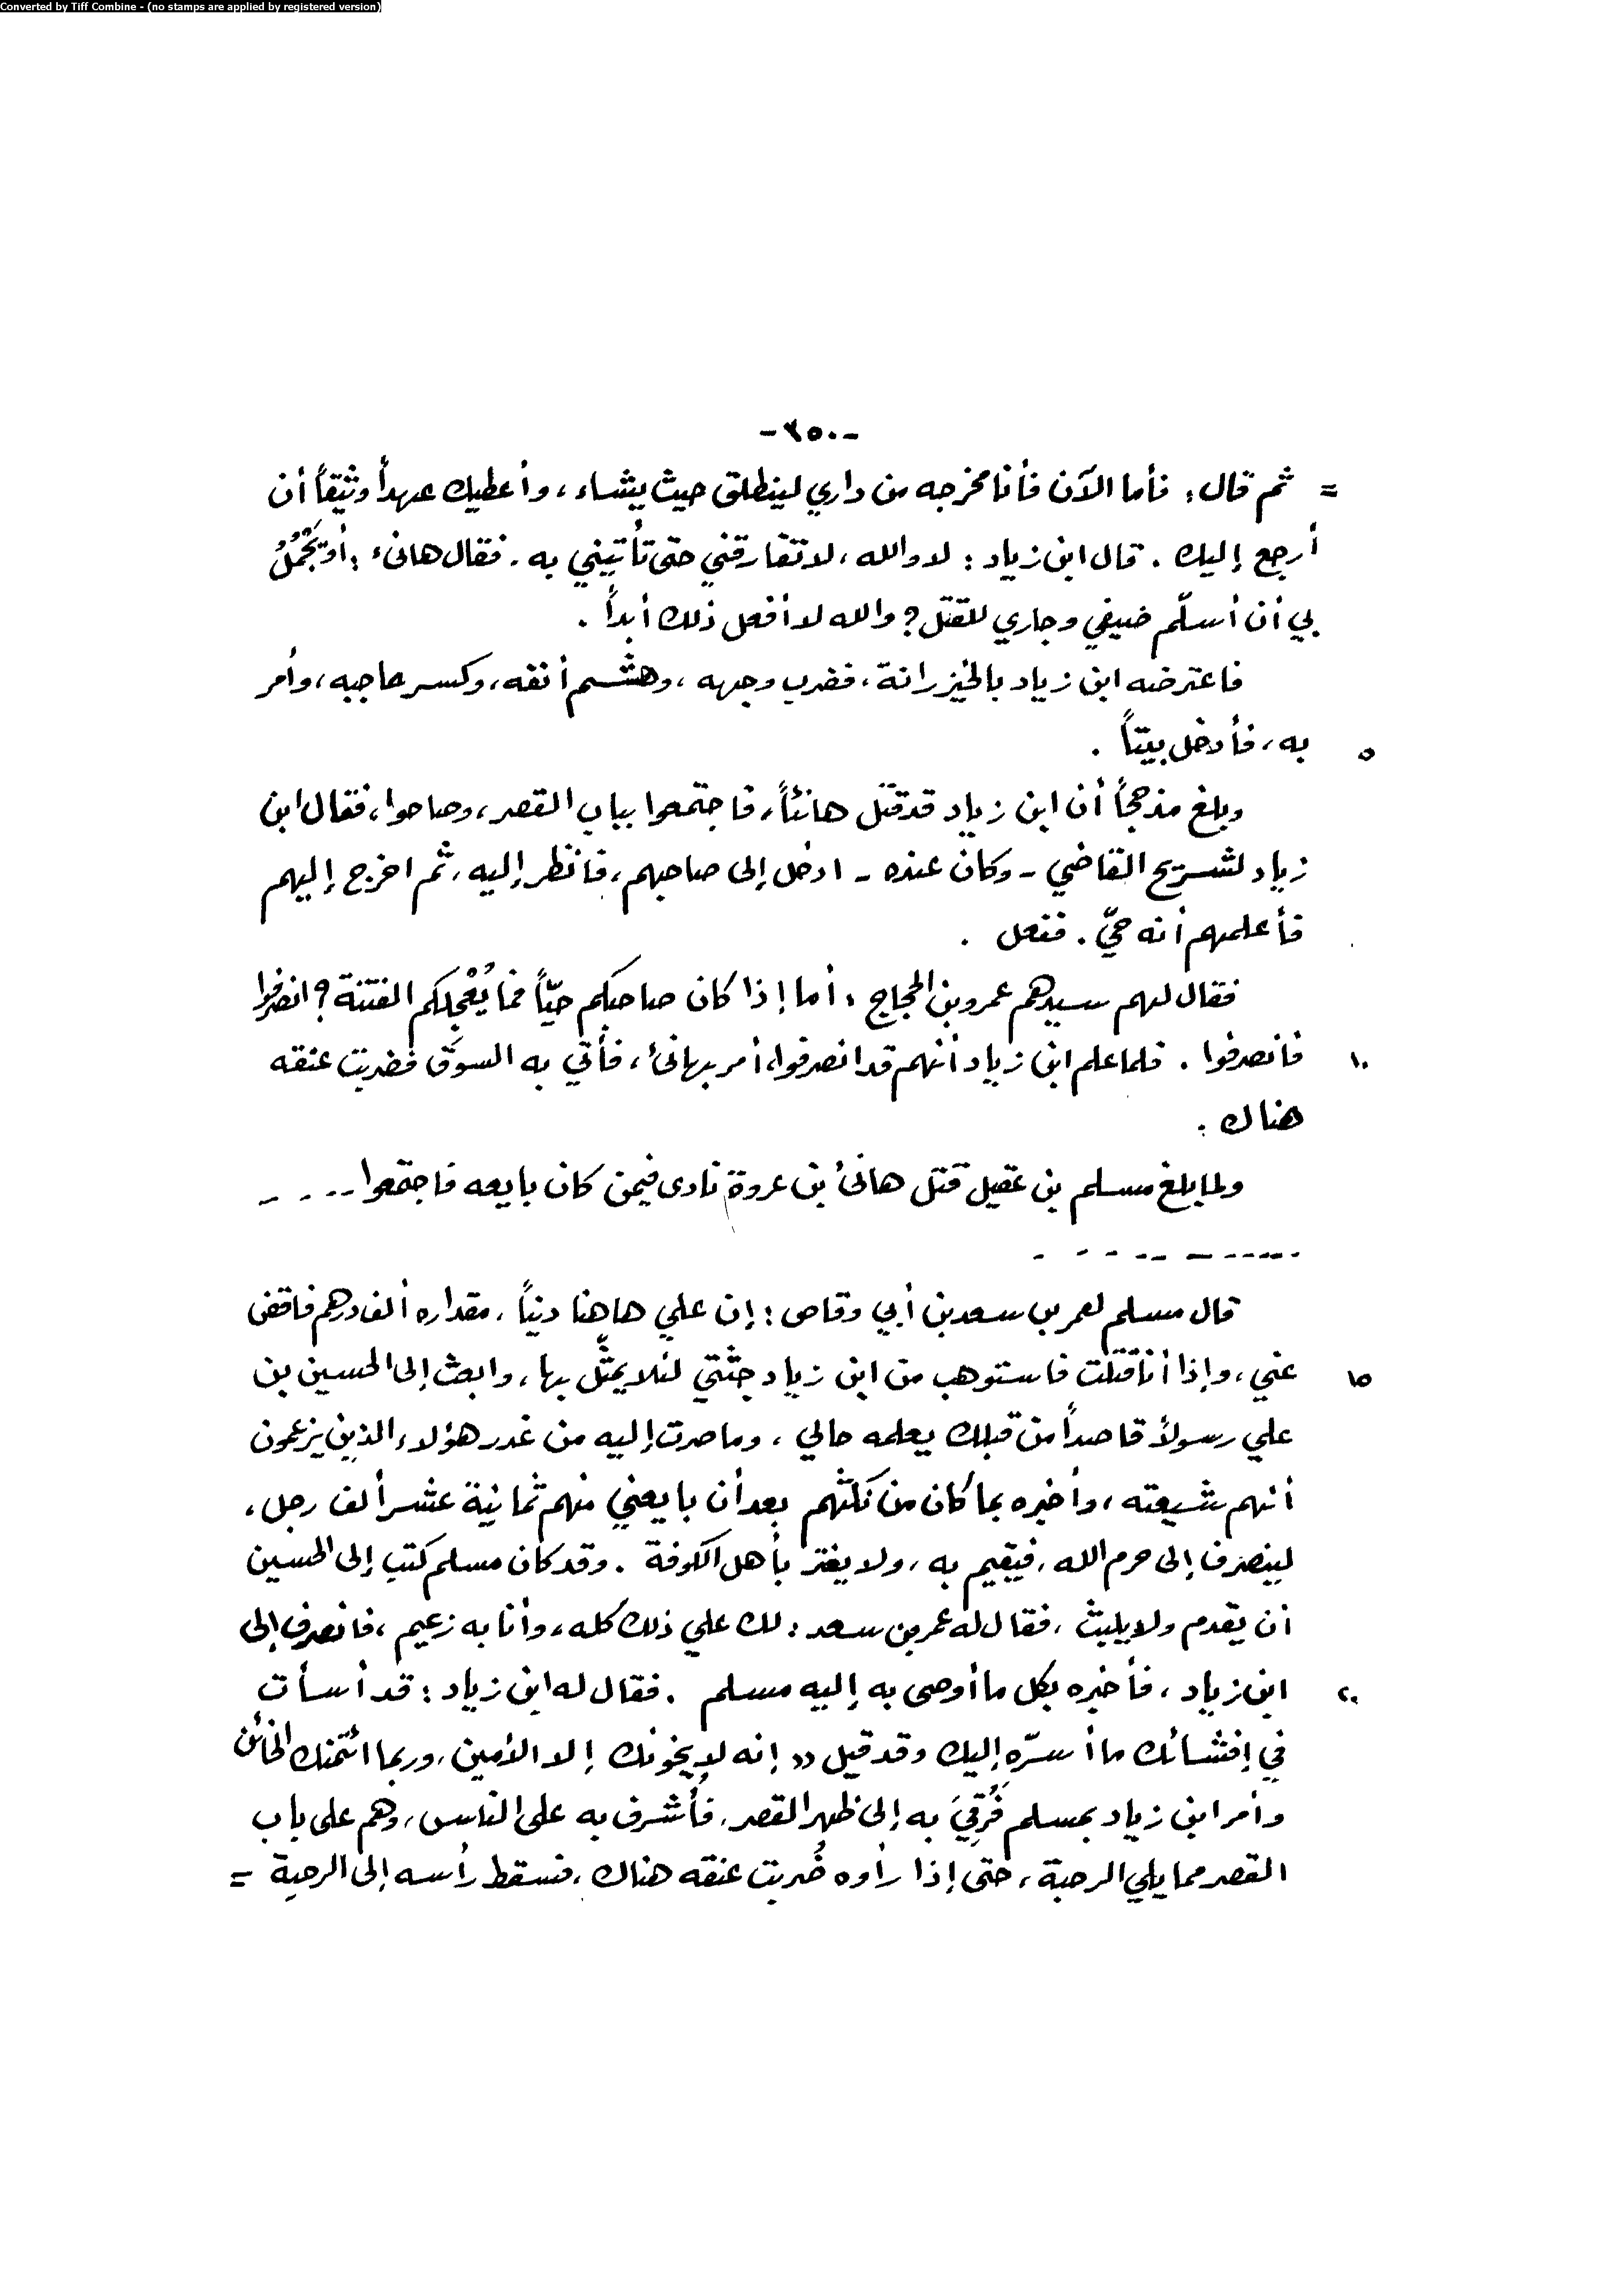 Converted by Tiff Combine - (no stamps are applied by registered version)
-٣٥٠-
= ثم قال: فأما الآن فأنا مخرجه من داري لينطلق حيث يشاء، وأعطيك عهداً وثيقاً أن
أرجع إليك. قال ابن زياد: لا والله، لا تفارقني حتى تأتيني به. فقال هانىء: أو يَجْمُلُ
بي أن أسلّم ضيفي وجاري للقتل؟ والله لا أفعل ذلك أبداً.
فاعترضه ابن زياد بالخيزرانة، فضرب وجهه، وهشم أنفه، وكسر حاجبه، وأمر
٥ به، فأدخل بيتاً.
وبلغ مذحجاً أن ابن زياد قد قتل هانئاً، فاجتمعوا بباب القصر، وصاحوا، فقال ابن
زياد لشريح القاضي - وكان عنده - ادخل إلى صاحبهم، فانظر إليه، ثم اخرج إليهم
فأعلمهم أنه حيّ. ففعل.
فقال لهم سيدهم عمرو بن الحجاج: أما إذا كان صاحبكم حيّاً فما يُعْجِلكم الفتنة؟ انصرفوا
١٠ فانصرفوا. فلما علم ابن زياد أنهم قد انصرفوا، أمر بهانئ، فأتي به السوق فضربت عنقه
هناك.
ولما بلغ مسلم بن عقيل قتل هانئ بن عروة نادى فيمن كان بايعه فاجتمعوا - - - -
- - - - - - - - - -
قال مسلم لعمر بن سعد بن أبي وقاص: إن علي هاهنا ديناً، مقداره ألف درهم فاقض
١٥ عني، وإذا أنا قتلت فاستوهب من ابن زياد جثّتي لئلا يمثّل بها، وابعث إلى الحسين بن
علي رسولاً قاصداً من قبلك يعلمه حالي، وما صرت إليه من غدر هؤلاء الذين يزعمون
أنهم شيعته، وأخبره بما كان من نكثهم بعد أن بايعني منهم ثمانية عشر ألف رجل،
لينصرف إلى حرم الله، فيقيم به، ولا يغتر بأهل الكوفة. وقد كان مسلم كتب إلى الحسين
أن يقدم ولا يلبث، فقال له عمر بن سعد: لك علي ذلك كله، وأنا به زعيم، فانصرف إلى
٢٠ ابن زياد، فأخبره بكل ما أوصى به إليه مسلم. فقال له ابن زياد: قد أسأت
في إفشائك ما أسرّه إليك وقد قيل «إنه لا يخونك إلا الأمين، وربما ائتمنك الخائن
وأمر ابن زياد بمسلم فَرُقِيَ به إلى ظهر القصر، فأُشرف به على الناس، وهم على باب
القصر مما يلي الرحبة، حتى إذا رأوه ضُربت عنقه هناك، فسقط رأسه إلى الرحبة =